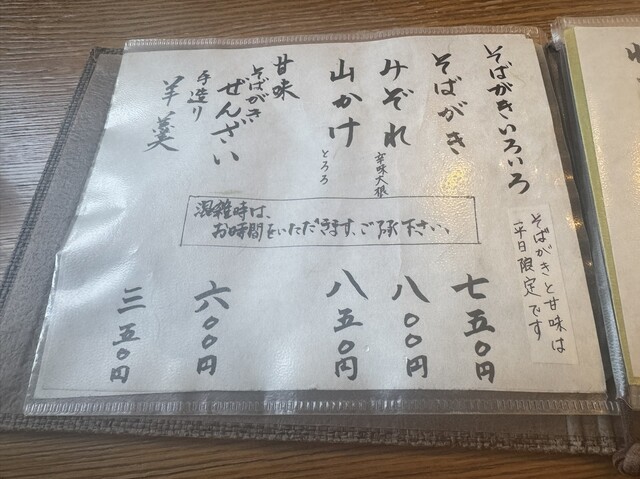 そばがきいろいろ
そばがきと甘味は
平日限定です
そばがき
七五〇円
みぞれ
辛味大根
八〇〇円
山かけ
とろろ
八五〇円
甘味
そばがき
ぜんざい
六〇〇円
手造り
羊羹
三五〇円
混雑時は、
お時間をいただきます、ご了承下さい、